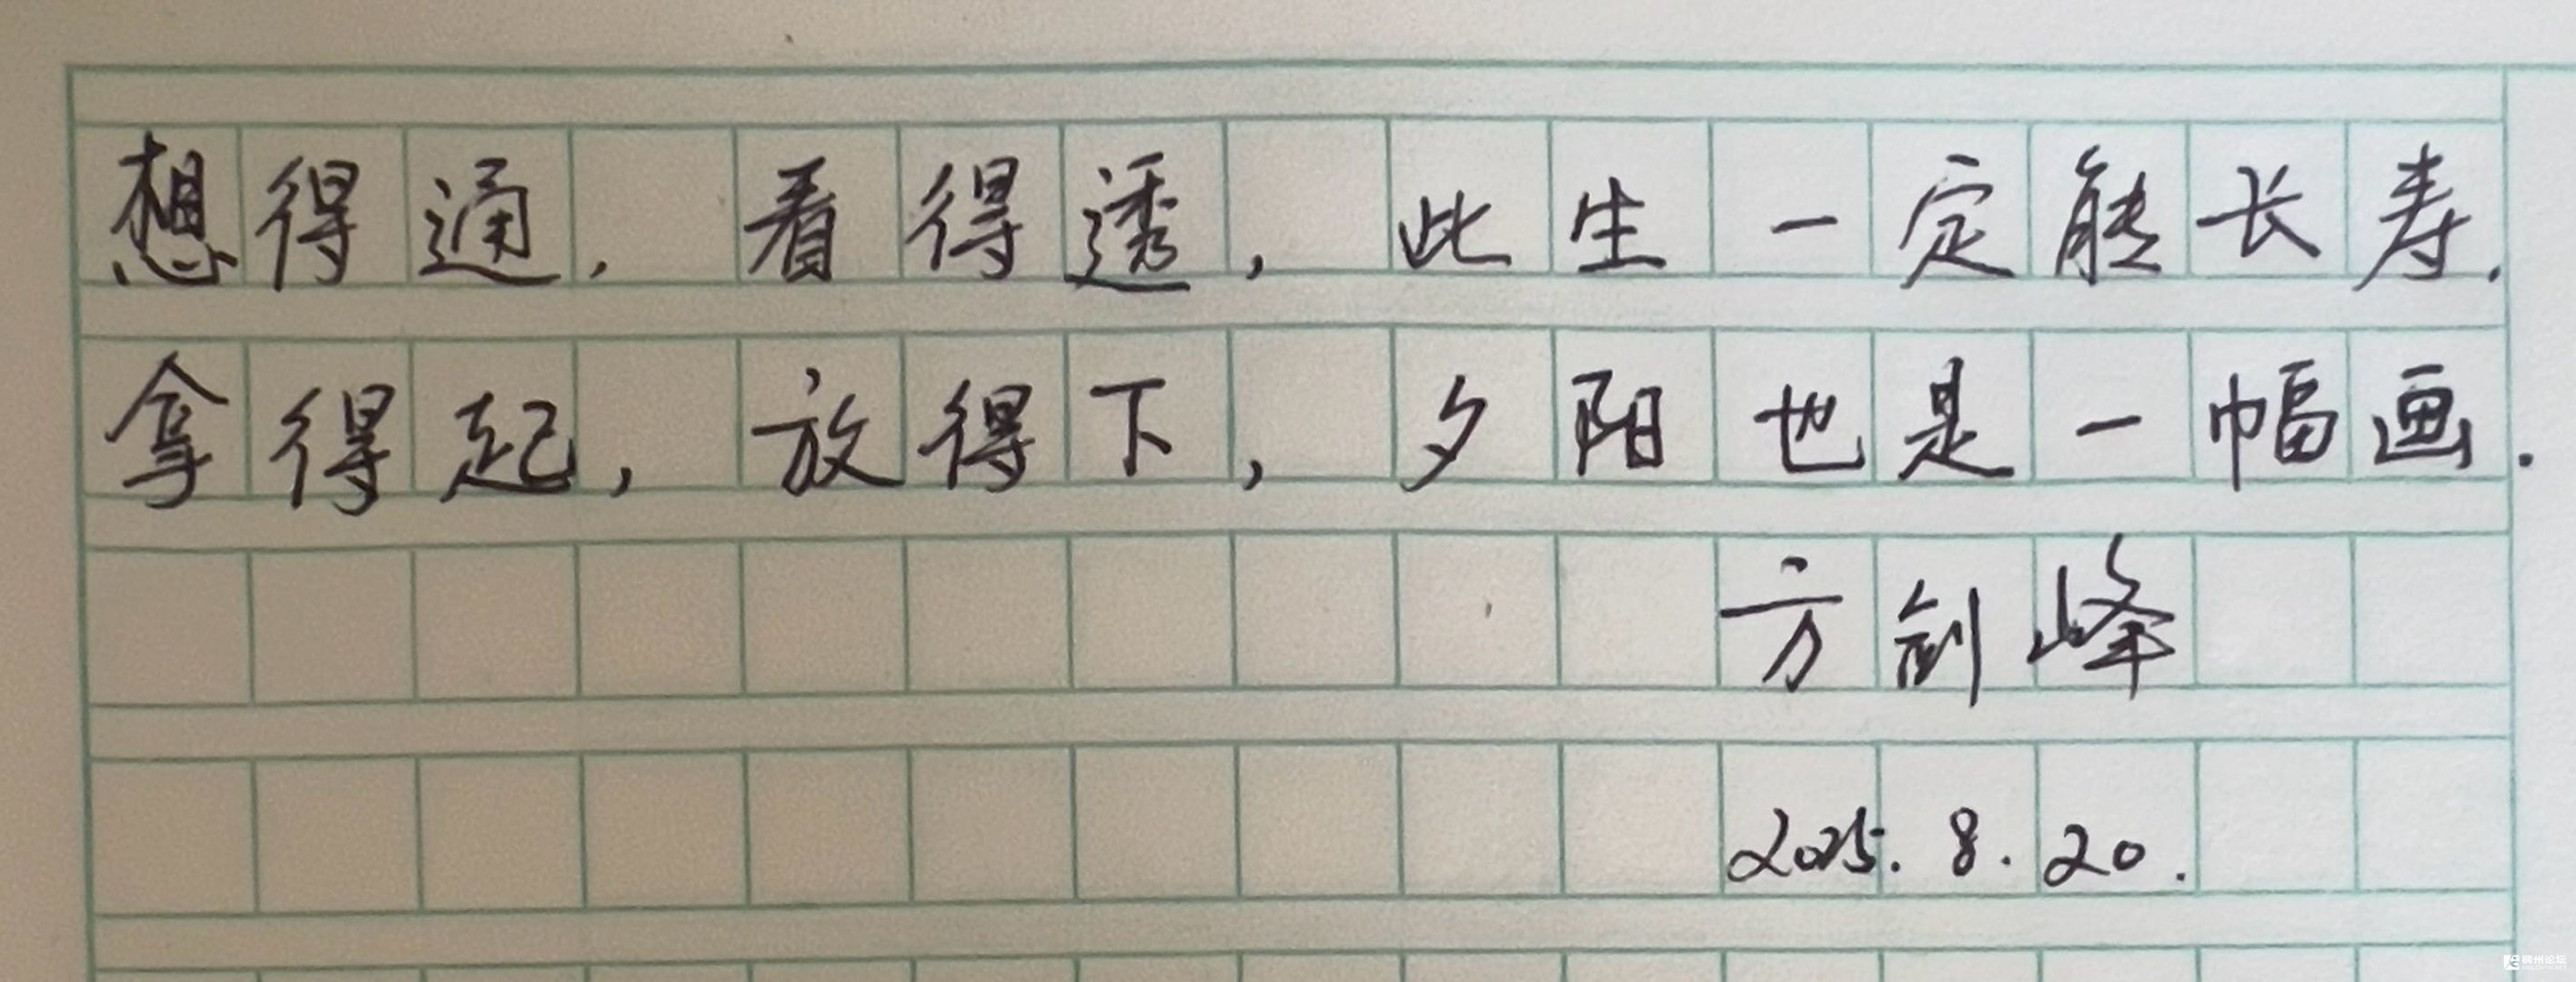 想得通，看得透，此生一定能长寿.
拿得起，放得下，夕阳也是一幅画.
方剑峰
2025.8.20.
稠州论坛